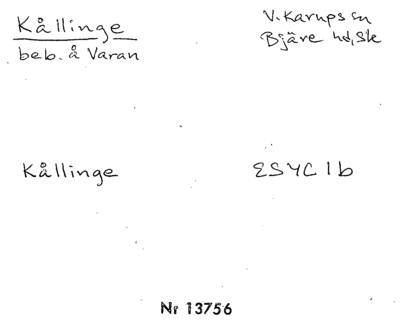 Kållinge
V. Karups sn
beb. å Varan
Bjäre hd, Sk
Kållinge
ESYC 1b
Nr 13756